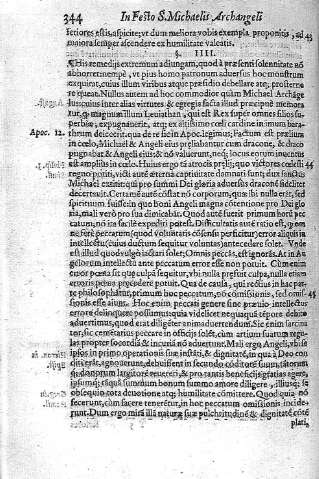 344 In Festo S. Michaelis Archangeli
fetiores estis, aspicite, vt dum meliora vobis exempla proponitis, ad
maiora semper ascendere ex humilitate valeatis.
§. IIII.
His remedijs extremum adiungam, quod à præsenti solemnitate nō
abhorret nempè, vt pius homo patronum aduersus hoc monstrum
exquirat, cuius illum viribus atque præsidio debellare atq; prosterne
re queat. Nullus autem ad hoc commodior quàm Michael Archāge
lus: cuius inter alias virtutes & egregia facta illud præcipuè memora
tur, magnum illum Leuiathan, qui est Rex super omnes filios su-
perbiæ, expugnauerit, atq; ex altissimo cœli cardine in imum bara-
Apoc. 12. thrum deiecerit. qua de re sic in Apoc. legimus; Factum est præliū
in cœlo, Michael & Angeli eius præliabantur cum dracone, & draco
pugnabat & Angeli eius & nō valuerunt, neq; locus eorum inuentus
est amplius in cœlo. Huius ergo tā atrocis prælij; quo victores cœlesti
regno potiti, victi autē æterna captiuitate damnati sunt; dux san
Michael extitit; qui pro summi Dei gloria aduersus draconē fideliter
decertauit. Certamē autē
spiritum fuisse: in quo boni Angeli magna cōtentione pro Dei glo
ria, mali verò pro sua dimicabāt. Quod autē fuerit primum horū pec
catum, nō ita facilè expediri potest. Difficultatis autē ratio est,
ne ferè peccatum (quod voluntatis cōsensu perficitur) error aliquis in
intellectu (cuius ductum sequitur voluntas) antecedere solet. Vnde
est illud quod vulgò iactari solet, Omnis peccās, est ignorās. At in An
gelorum intellectu ante peccatum error esse non potuit. Cū enim
error pœna sit quæ culpā sequitur, vbi nulla præfuit culpa, nulla etiam
erroris pœna præcedere potuit. Qua de causa, qui rectius in hac par
te philosophātur, primum hoc peccatum, nō cōmissionis, sed omis-
sionis esse aiunt. Hoc enim peccati genere sine præuio intellectus
errore delinquere possumus: quia videlicet nequaquā tēpore debito
aduertimus, quod erat diligēter animaduertendum. Sic enim sarcina
tor, sic cæmētarius peccare in officijs solēt, cùm artium suarum regu-
las propter socordiā & incuriā nō aduertunt. Mali ergo Angeli, vbi se
ipsos in primo operationis suæ instāti, & dignitatē, in qua à Deo con
diti erāt, agnouerunt, debuissent in secundo cōditorē suum, tātorum
que donorum largitorē reuereri, & pro tantis beneficijs gratias agere,
ipsumq; tāquā summum bonum summo amore diligere, illiusq; se
obsequio tota deuotione atq; humilitate cōmittere. Quod quia nō
fecerunt, cùm facere tenerētur, in hoc peccatum omissionis incide-
runt. Dum ergo mirā illā naturæ suæ pulchritudinē & dignitatē cōtē
plati,